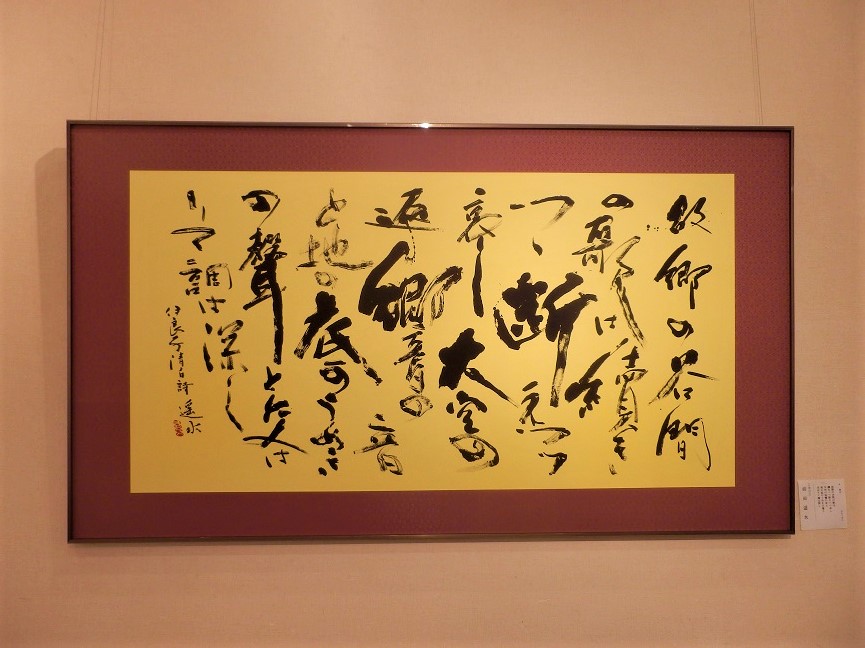 故郷の谷間
の歌は續き
つゝ断えつゝ
哀し大空の
返響の音
と地の底のうめき
の聲と交は
りて調は深し
伊良子清白詩 遥水